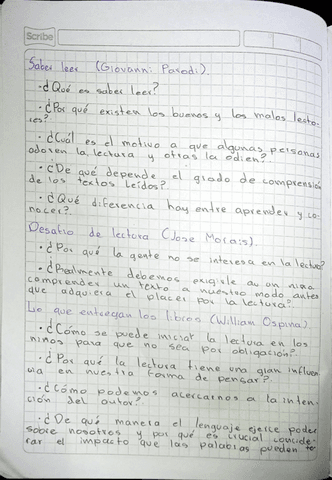 Scribe
Saber leer (Giovanni Parodi).
· ¿Qué es saber leer?
· ¿Por qué existen los buenos y los malos lecto-
res?
· ¿Cuál es el motivo a que algunas personas
adoren la lectura y otras la odien?
· ¿De qué depende el grado de comprensión
de los textos leídos?
· ¿Qué diferencia hay entre aprender y co-
nocer?.
Desafio de lectura (Jose Morais).
· ¿Por qué la gente no se interesa en la lectura?
· ¿Realmente debemos exigirle a un niño
comprender un texto a nuestro modo antes
que adquiera el placer por la lectura?
Lo que entregan los libros (William Ospina)
· ¿Cómo se puede iniciar la lectura en los
niños para que no sea por obligación?
· ¿Por qué la lectura tiene una gran influen
cia en nuestra forma de pensar?
· ¿Cómo podemos acercarnos a la inten-
ción del autor?
· ¿De qué manera el lenguaje ejerce poder
sobre nosotros y por qué es crucial conside-
rar el impacto que las palabras pueden te